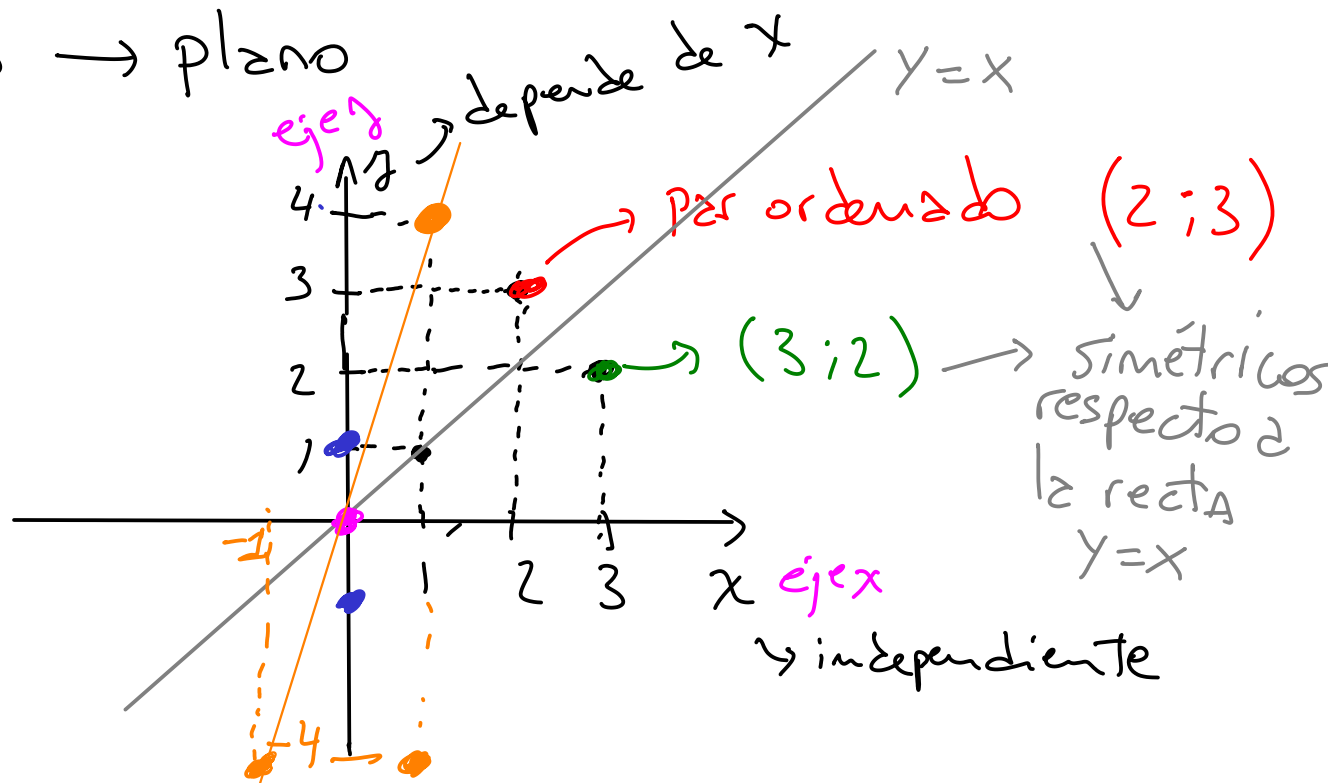 → plano
eje y
y → depende de x
y = x
4
3
2
1
→ Par ordenado (2 ; 3)
→ (3 ; 2) → simétricos
respecto a
la recta
y = x
-1
1 2 3 x eje x
↘ independiente
-4